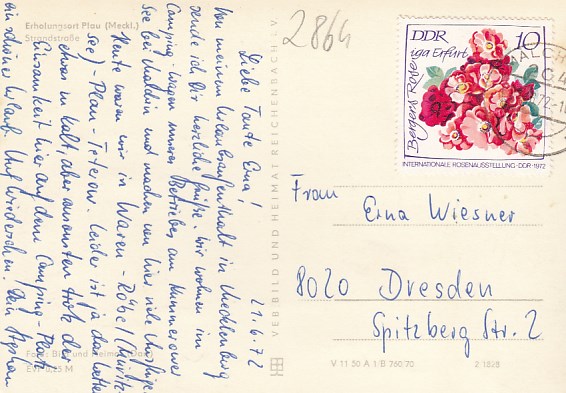 Erholungsort Plau (Meckl.)
Strandstraße
2864
DDR 10
Bergers Rose
iga Erfurt
INTERNATIONALE ROSENAUSSTELLUNG·DDR·1972
21.6.72
Liebe Tante Erna!
Von meinem Urlaubsaufenthalt in Mecklenburg
sende ich Dir herzliche Grüße. Wir wohnen im
Camping-wagen unseres Betriebes am Kummerower
See bei Malchin und machen von hier viele Ausflüge.
Heute waren wir in Waren - Röbel (Müritz-
see) - Plau - Teterow. Leider ist ja das Wetter
etwas zu kalt, aber ansonsten trotz der
Einsamkeit hier auf dem Camping-Platz
ein schöner Urlaub. Auf Wiedersehen. Dein Stephan
Foto: Bild und Heimat
EVP 0,25 M
VEB BILD UND HEIMAT REICHENBACH I. V.
Frau
Erna Wiesner
8020 Dresden
Spitzberg Str. 2
V 11 50 A 1 B 760 70
2 1828